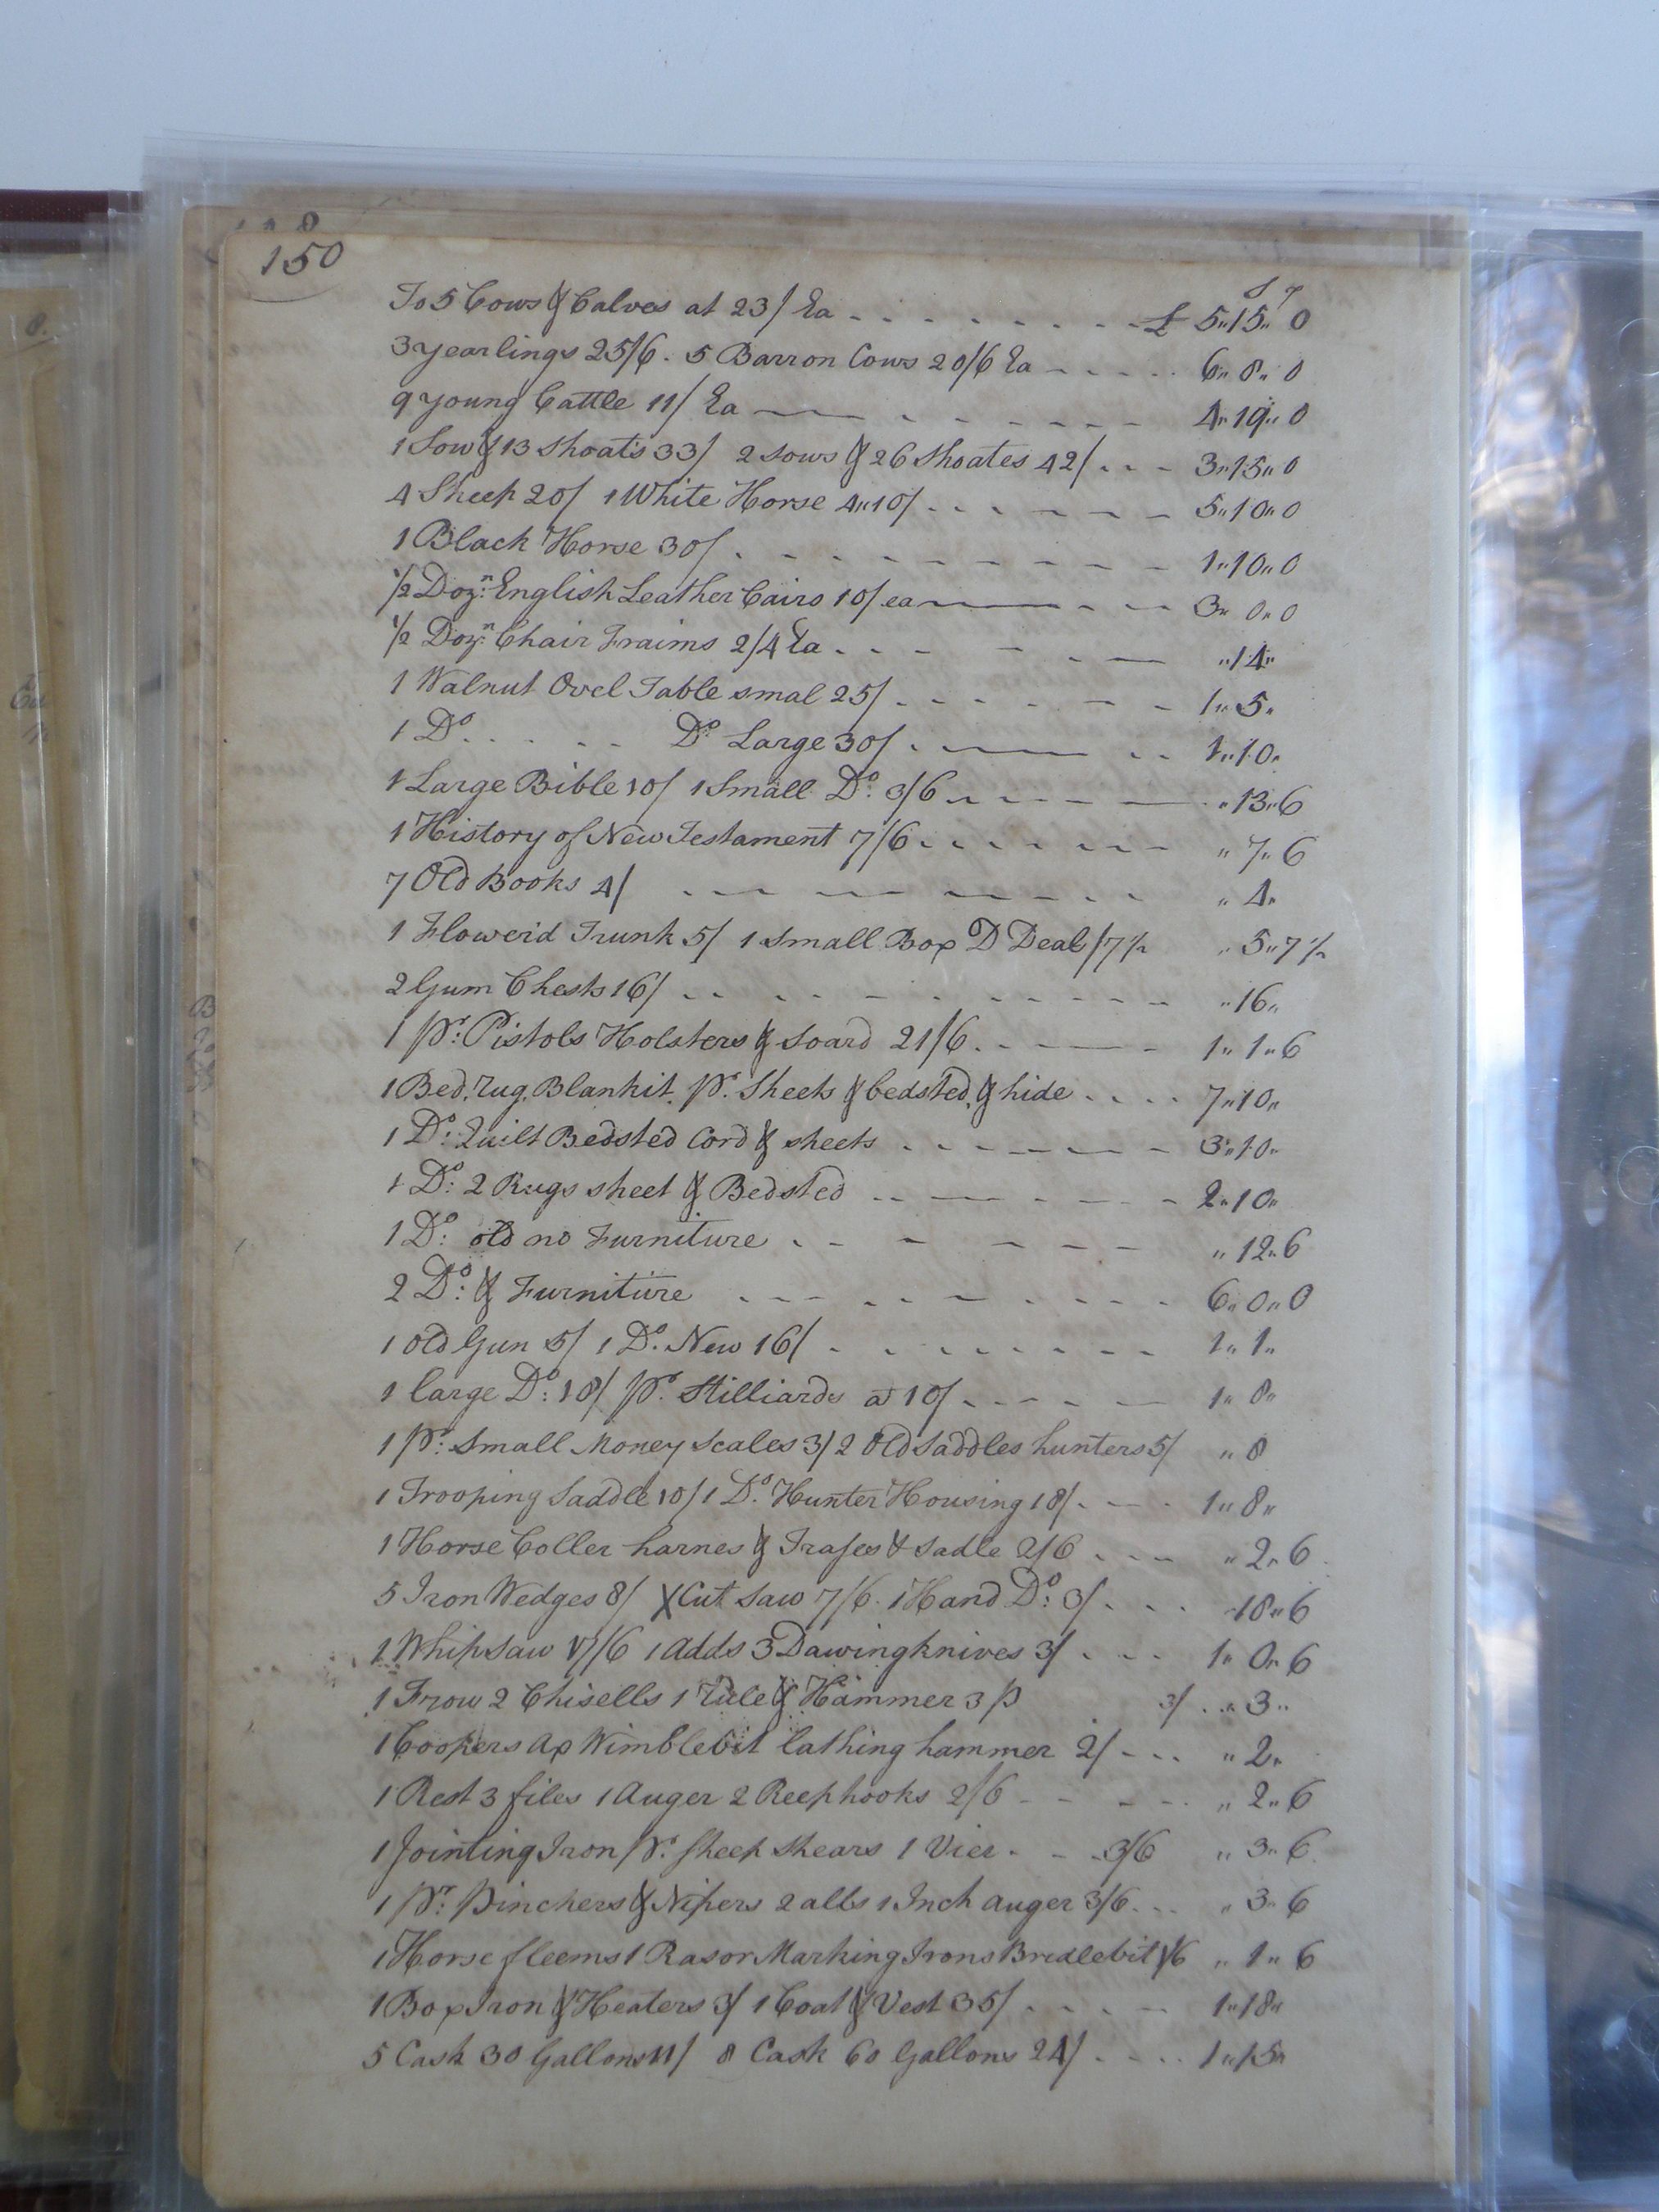 150
S P
To 5 Cows & Calves at 23/ Ea - - - - - - - - £ 5„15„ 0
3 yearlings 25/6. 5 Barron Cows 20/6 Ea - - - - - 6„ 8„ 0
9 young Cattle 11/ Ea - - - - - - - 4„19„ 0
1 Sow & 13 Shoats 33/ 2 sows & 26 Shoates 42/ - - - 3„15„0
4 Sheep 20/ 1 White Horse 4„10/ - - - - - - 5„10„0
1 Black Horse 30/ - - - - - - - - - 1„10„0
1/2 Dozn: English Leather Cairs 10/ ea - - - 3„ 0„0
1/2 Dozn: Chair Fraims 2/4 Ea - - - - - - „14„
1 Walnut Ovel Table smal 25/ - - - - - - 1„5„
1 Do - - - - Do Large 30/ - - - - 1„10„
1 Large Bible 10/ 1 Small Do: 3/6 - - - - - „13„6
1 History of New Testament 7/6 - - - - - - „ 7„ 6
7 Old Books 4/ - - - - - - - - „ 4„
1 Flowerd Trunk 5/ 1 Small Box D Deal /7 1/2 „ 5„7 1/2
2 Gum Chests 16/ - - - - - - - - - - „16„
1 Pr: Pistols Holsters & Soard 21/6 - - - - 1„ 1„6
1 Bed, rug, Blankit, Pr. Sheets & bedsted, & hide - - - - 7„10„
1 Do: Quilt Bedsted Cord & sheets - - - - - - 3„10„
1 Do: 2 Rugs sheet & Bedsted - - - - - - 2„10„
1 Do: old no Furniture - - - - - - „ 12„6
2 Do: & Furniture - - - - - - - - - 6„ 0„0
1 old Gun 5/ 1 Do. New 16/ - - - - - - - - 1„ 1„
1 large Do: 18/ Pr. Stilliards at 10/ - - - - - 1„ 8„
1 Pr: Small Money Scales 3/ 2 Old Saddles hunters 5/ „ 8
1 Trooping Saddle 10/ 1 Do. Hunter Housing 18/ - - - 1„ 8„
1 Horse Coller harnes & Trases & Sadle 2/6 - - - „ 2„ 6
5 Iron Wedges 8/ X Cut Saw 7/6. 1 Hand Do: 3/ - - - „18„6
1 Whip Saw 17/6 1 Adds 3 Dawingknives 3/ - - - 1„ 0„ 6
1 Frow 2 Chisells 1 rule & Hammer 3 p 3/ - - „ 3„
1 Coopers Ax Wimblebit lathing hammer 2/ - - - „ 2„
1 Rest 3 files 1 Auger 2 Reephooks 2/6 - - - - - „ 2„ 6
1 Jointing Iron Pr. sheep shears 1 Vier - - - 3/6 „ 3„ 6
1 Pr: Pinchers & Nipers 2 alls 1 Inch auger 3/6 - - - „ 3„ 6
1 Horse fleems 1 Rasor Marking Irons Bridlebit 1/6 „ 1„ 6
1 Box Iron & Heaters 3/ 1 Coat & Vest 35/ - - - - 1„18„
5 Cask 30 Gallons 11/ 8 Cask 60 Gallons 24/ - - - - 1„15„